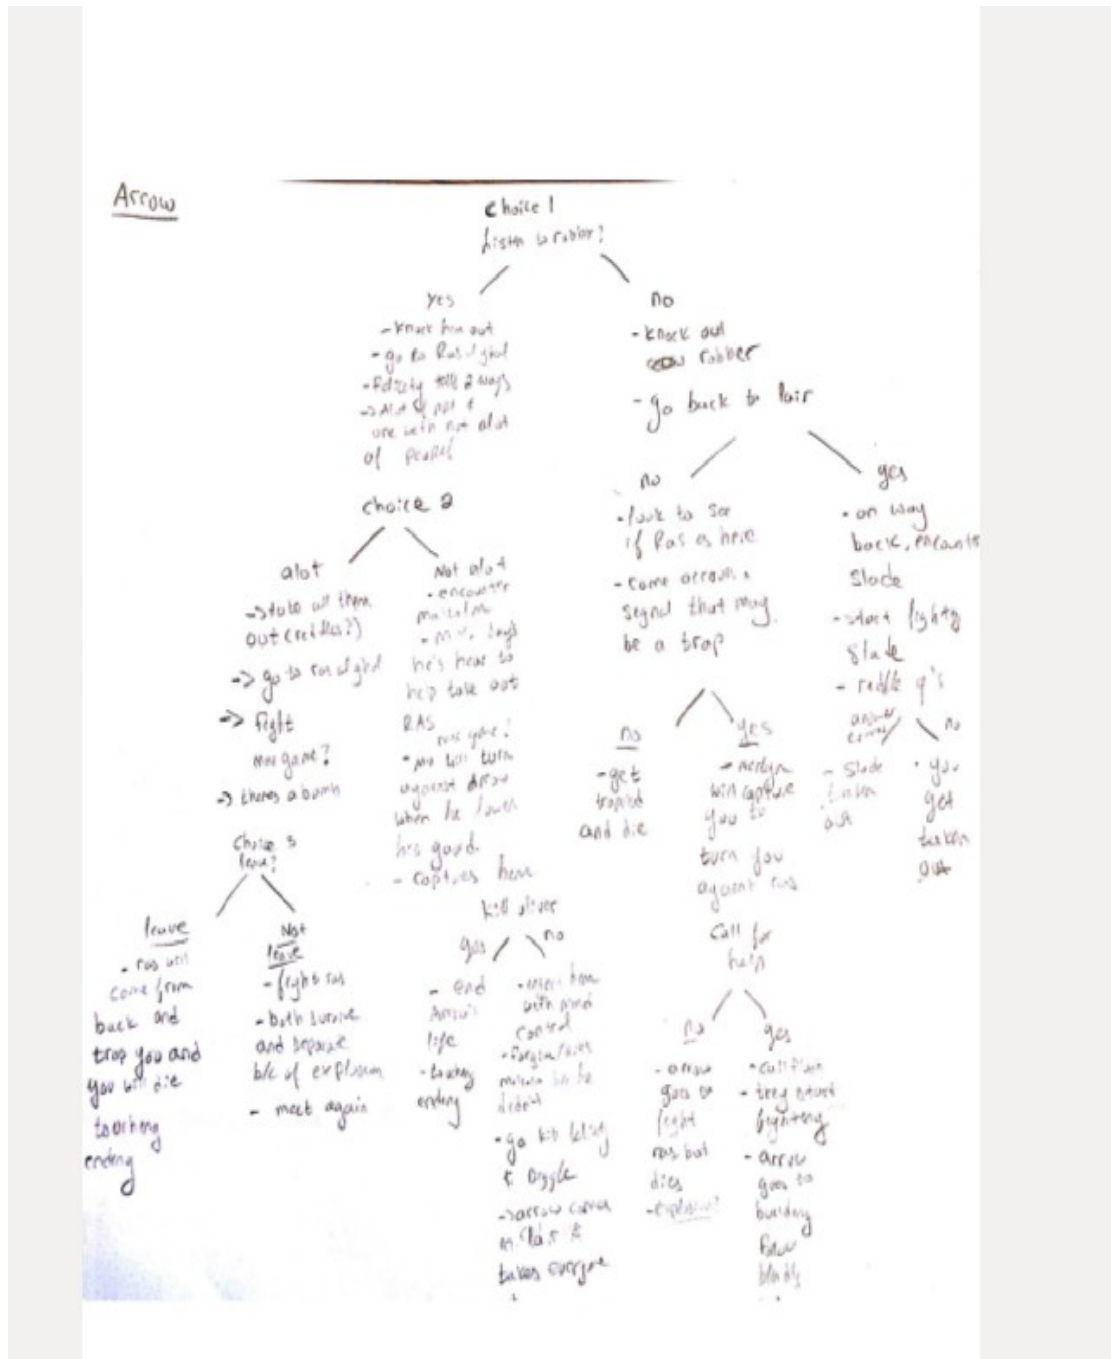 Arrow
Choice 1
Listen to robber?
yes
- knock him out
- go to Ras al ghul
- Felicity tells 2 ways
one with not alot
of people
no
- knock out
robber
- go back to lair
Choice 2
alot
-> take all them
out (riddles?)
-> go to ras al ghul
-> fight
mini game?
-> theres a bomb
Not alot
- encounter
malcolm
he's hear to
help take out
RAS
mini game?
will turn
against arrow
when he
hes good
- captures him
Choice 3
leave?
leave
- ras will
come from
back and
trap you and
you will die
touching
ending
Not
leave
- fight ras
- both survive
and separate
b/c of explosion
- meet again
kill oliver
yes
- end
Arrow's
life
- touching
ending
no
with mind
control
malcolm
- go kill felicity
& Diggle
-> arrow comes
takes everyone
no
- look to see
if Ras is here
- come across a
signal that may
be a trap
no
- get
trapped
and die
yes
- merlyn
will capture
you to
turn you
against ras
Call for
help
no
- arrow
goes to
fight
ras but
dies
- explosion?
yes
- call
- they start
fighting
- arrow
goes to
building
yes
- on way
back, encounte
Slade
- start fightg
Slade
- riddle q's
answer
correct
- Slade
taken
out
no
- you
get
taken
out